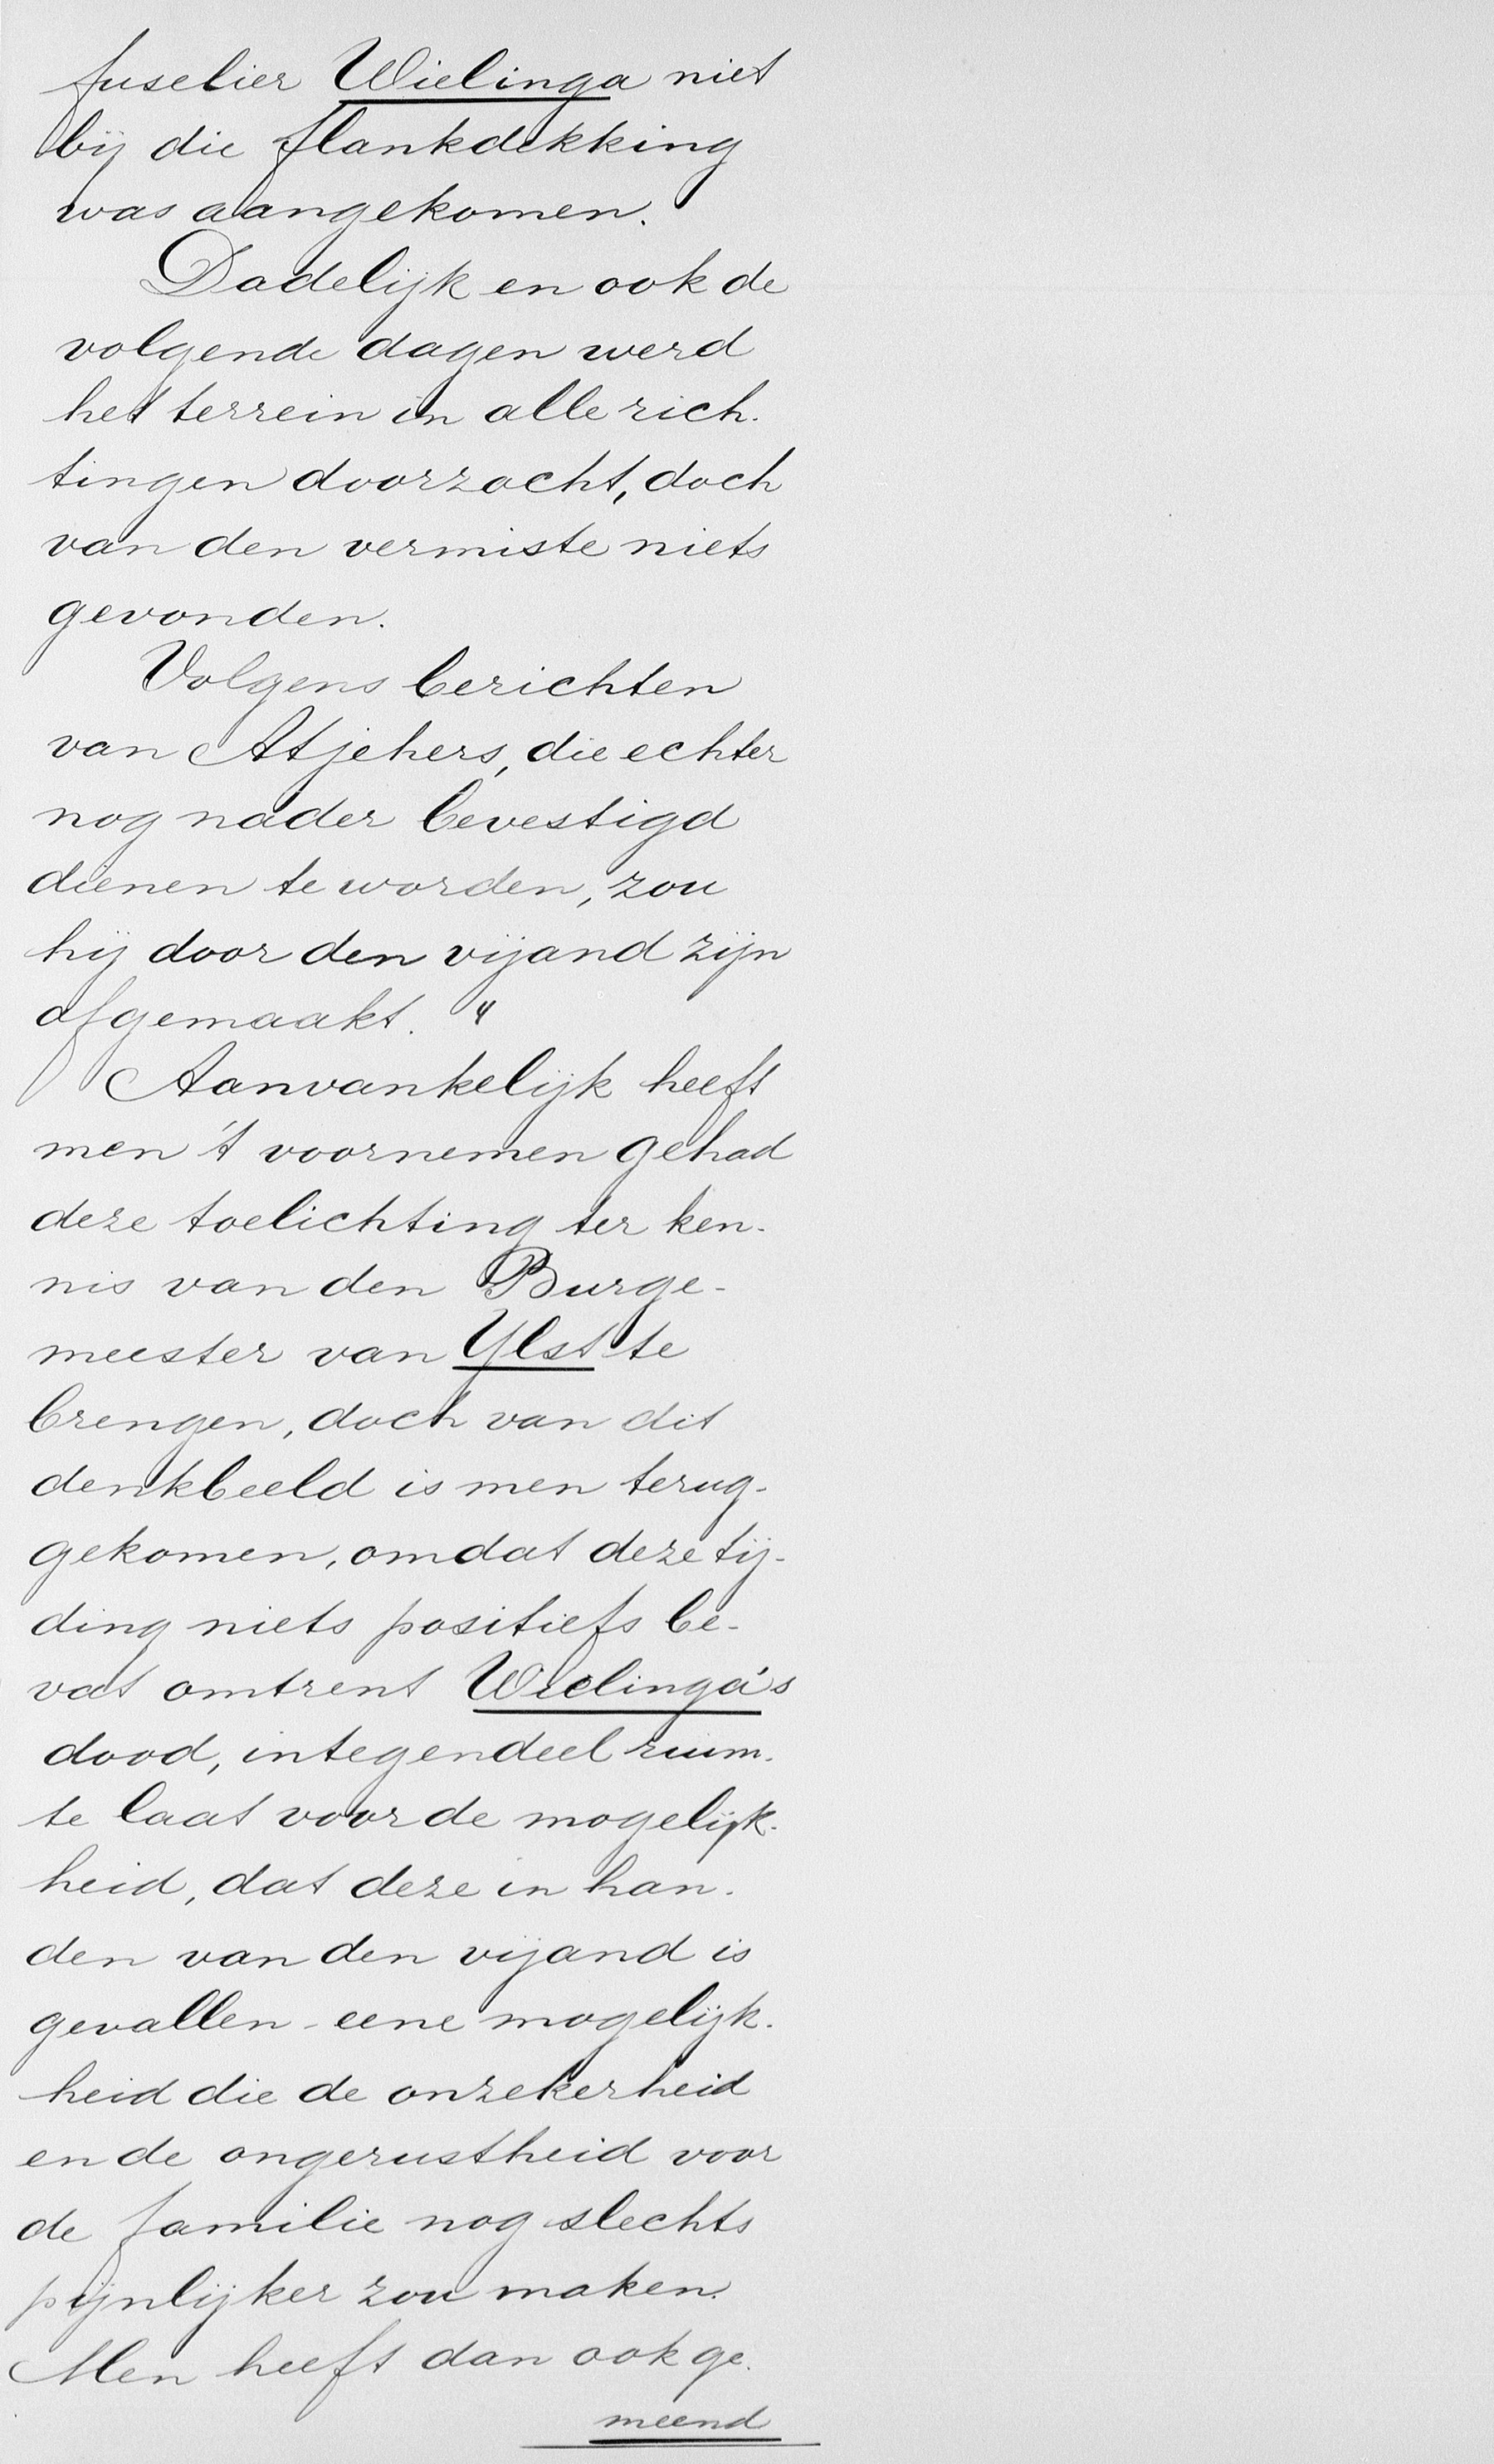 fuselier Wielinga niet
bij die flankdekking
was aangekomen.
Dadelijk en ook de
volgende dagen werd
het terrein in alle rich-
tingen doorzocht, doch
van den vermiste niets
gevonden.
Volgens berichten
van Atjehers, die echter
nog nader bevestigd
dienen te worden, zou
hij door den vijand zijn
afgemaakt. "
Aanvankelijk heeft
men 't voornemen gehad
deze toelichting ter ken-
nis van den Burge-
meester van Ylst te
brengen, doch van dit
denkbeeld is men terug-
gekomen, omdat deze tij-
ding niets positiefs be-
vat omtrent Wielinga's
dood, integendeel ruim-
te laat voor de mogelijk-
heid, dat deze in han-
den van den vijand is
gevallen - eene mogelijk-
heid die de onzekerheid
en de ongerustheid voor
de familie nog slechts
pijnlijker zou maken.
Men heeft dan ook ge-
meend